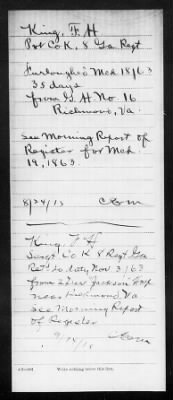 King, F. H.
Pvt Co K. 8 Ga Regt
Furloughed Mch 18/63
35 days
from G. H. No. 16
Richmond, Va.
see Morning Report of
Register for Mch
19, 1863.
8/24/15
King, F H
Sergt Co K 8 Regt Ga
Ret'd to duty Nov 3/63
from Jackson Hosp
near Richmond, Va
see Morning Report
of Register
Write nothing below this line.